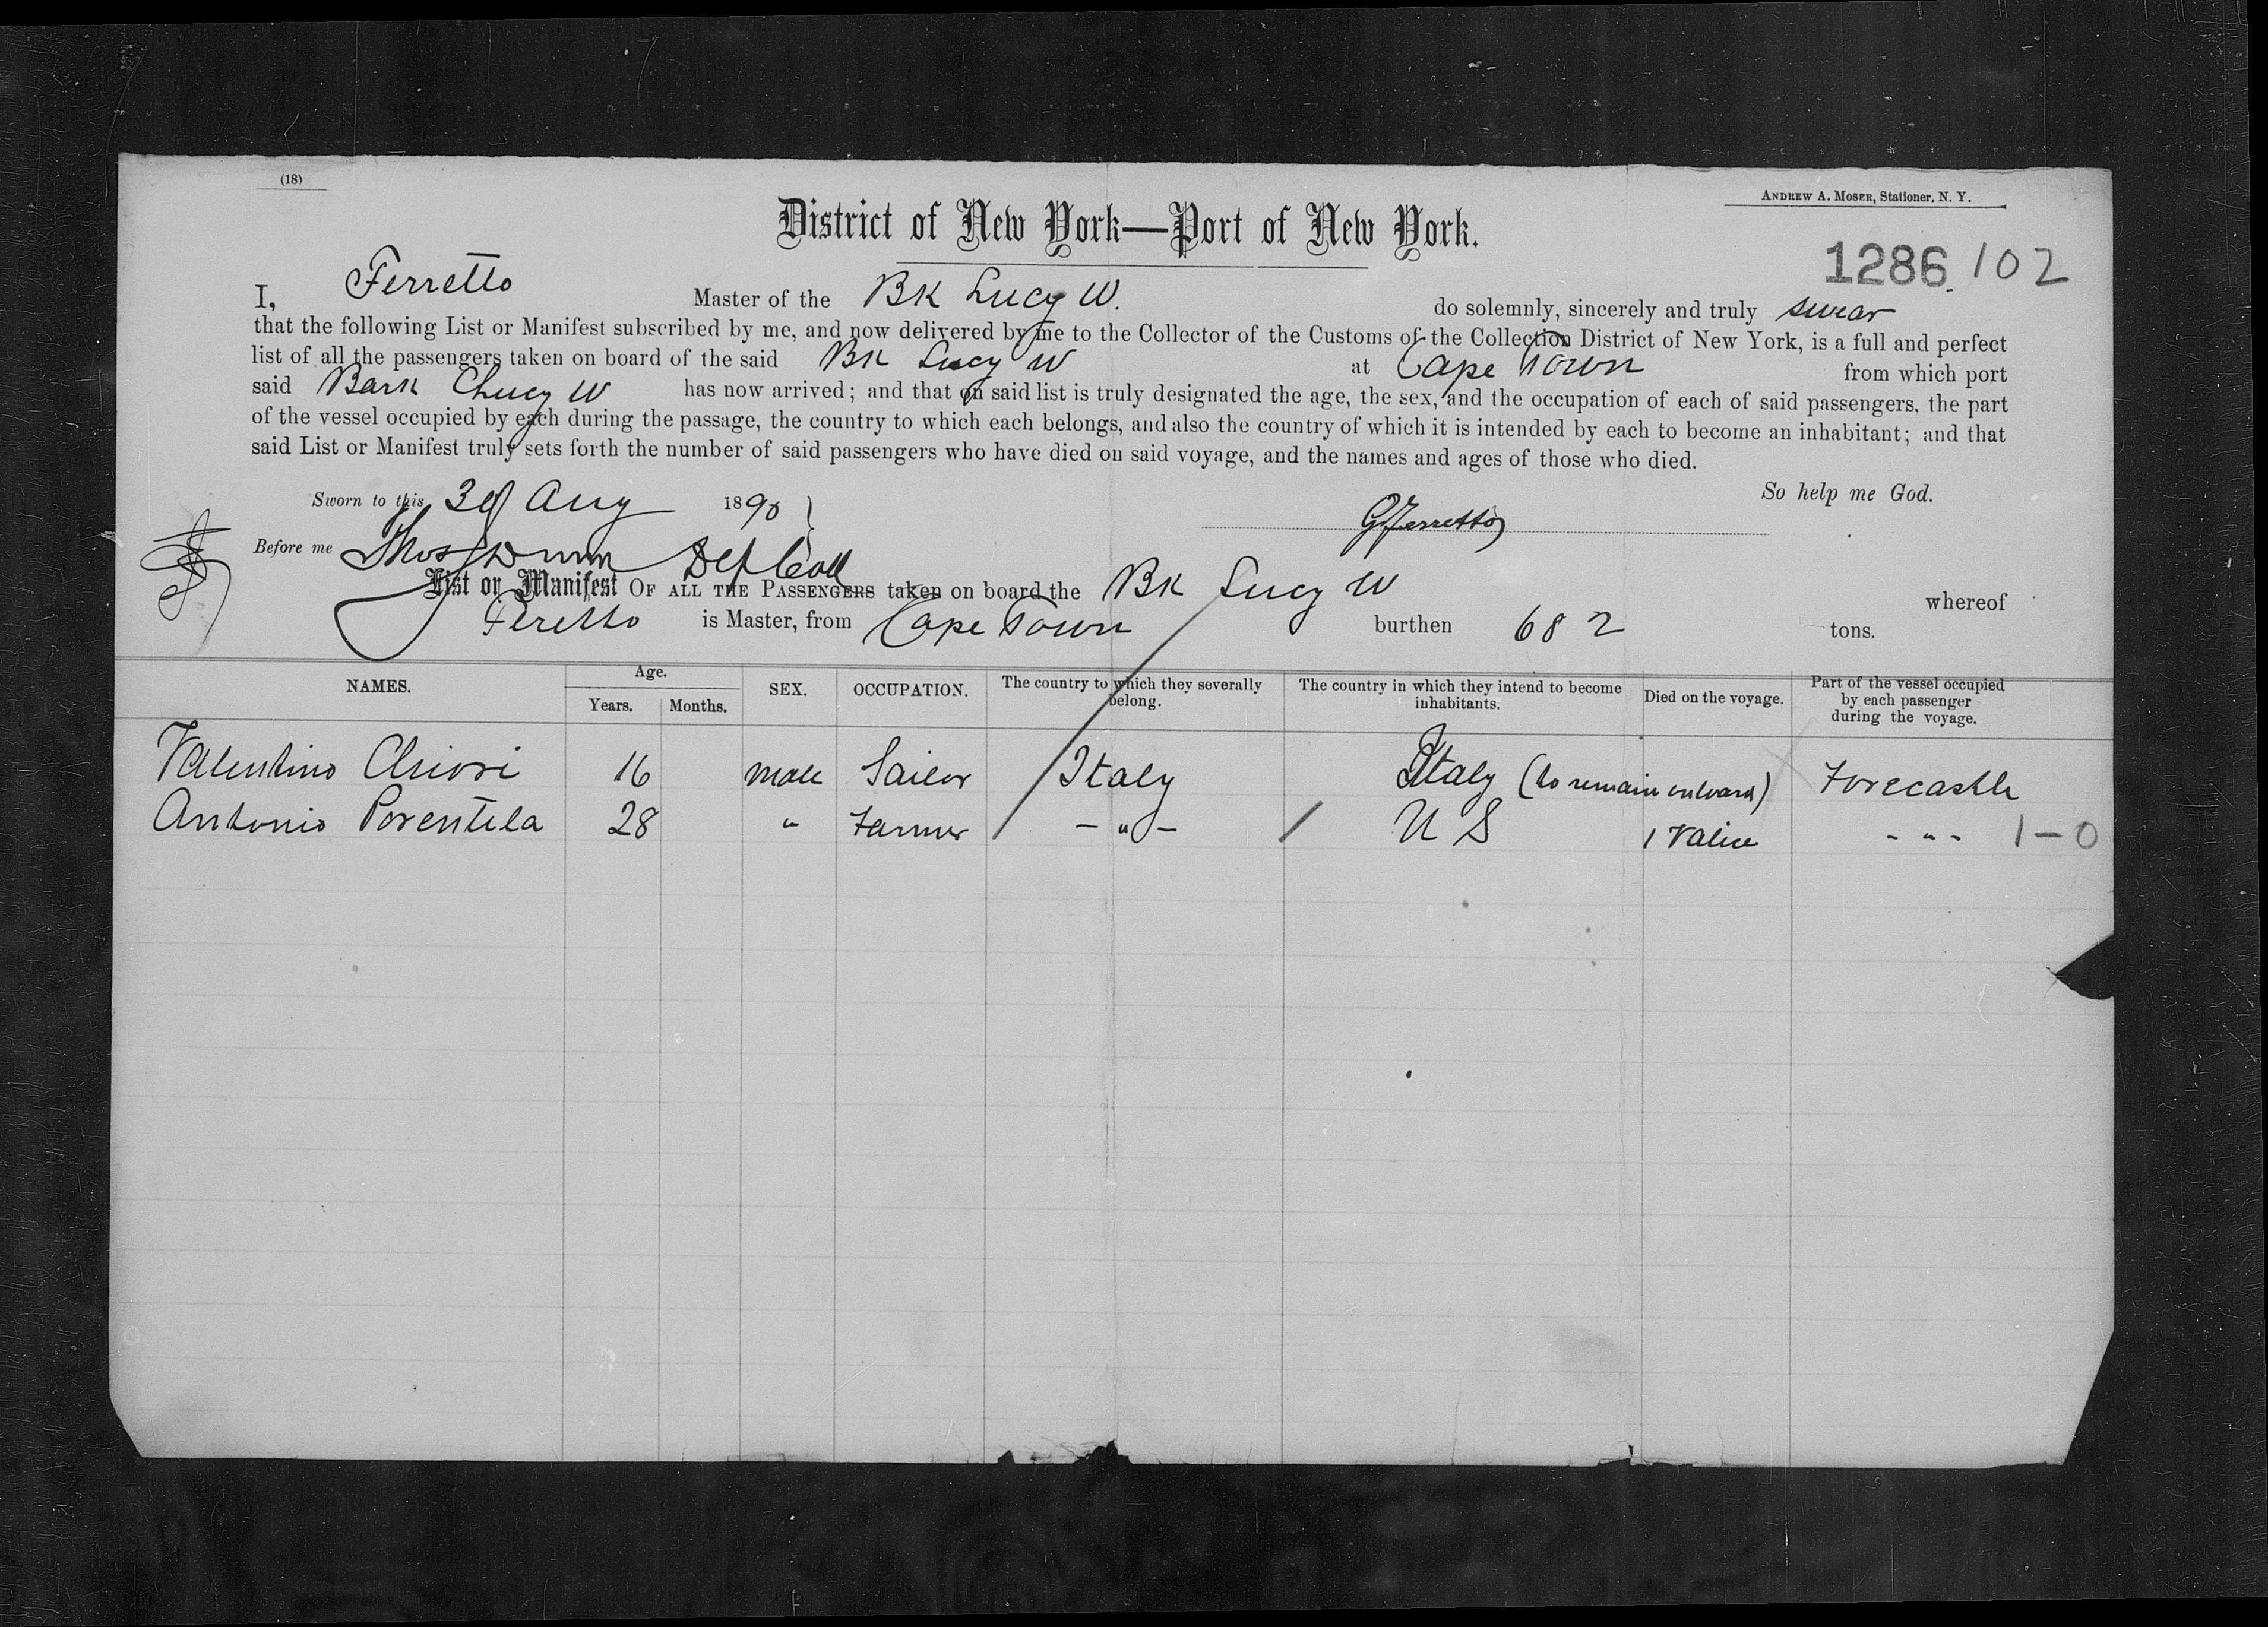 (18)
ANDREW A. MOSER, Stationer, N. Y.
District of New York—Port of New York.
1286 102
I, Ferretto Master of the Bk Lucy W. do solemnly, sincerely and truly swear
that the following List or Manifest subscribed by me, and now delivered by me to the Collector of the Customs of the Collection District of New York, is a full and perfect
list of all the passengers taken on board of the said Bk Lucy W at Cape Town from which port
said Bark Lucy W has now arrived; and that on said list is truly designated the age, the sex, and the occupation of each of said passengers, the part
of the vessel occupied by each during the passage, the country to which each belongs, and also the country of which it is intended by each to become an inhabitant; and that
said List or Manifest truly sets forth the number of said passengers who have died on said voyage, and the names and ages of those who died.
So help me God.
Sworn to this Aug 1890
G Ferretto
Before me Thos Dunn Dep Coll
List or Manifest OF ALL THE PASSENGERS taken on board the Bk Lucy W whereof
Feretto is Master, from Cape Town burthen 682 tons.
NAMES. Age. Years. Months. SEX. OCCUPATION. The country to which they severally belong. The country in which they intend to become inhabitants. Died on the voyage. Part of the vessel occupied by each passenger during the voyage.
Valentino 16 male Sailor Italy Italy (to remain onboard) Forecastle
Antonio Porentela 28 " Farmer / – " – / U S 1 Valice - " - 1–0